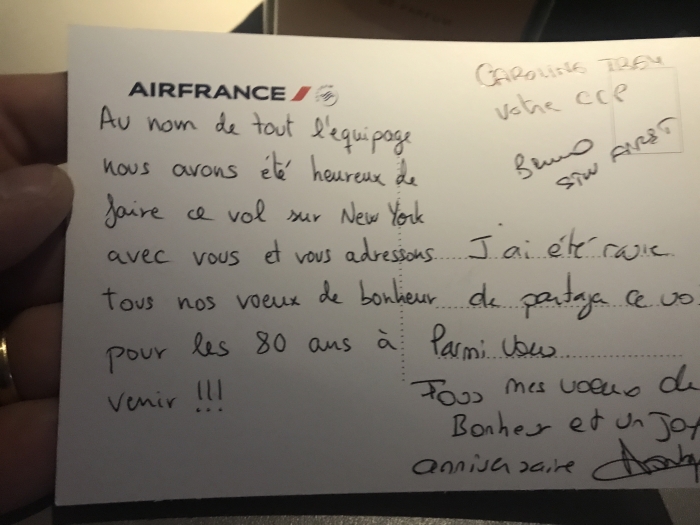 AIRFRANCE
Au nom de tout l'équipage
nous avons été heureux de
faire ce vol sur New York
avec vous et vous adressons
tous nos voeux de bonheur
pour les 80 ans à
venir !!!
CAROLINE
votre CCP
Bruno
STW FIRST
J'ai été ravie
de partager ce vo
Parmi vous
Tous mes voeux de
Bonheur et un Joy
anniversaire